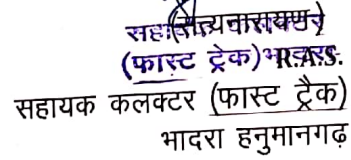 (सत्यनारायण)
(फास्ट ट्रेक) R.A.S.
सहायक कलक्टर (फास्ट ट्रैक)
भादरा हनुमानगढ़